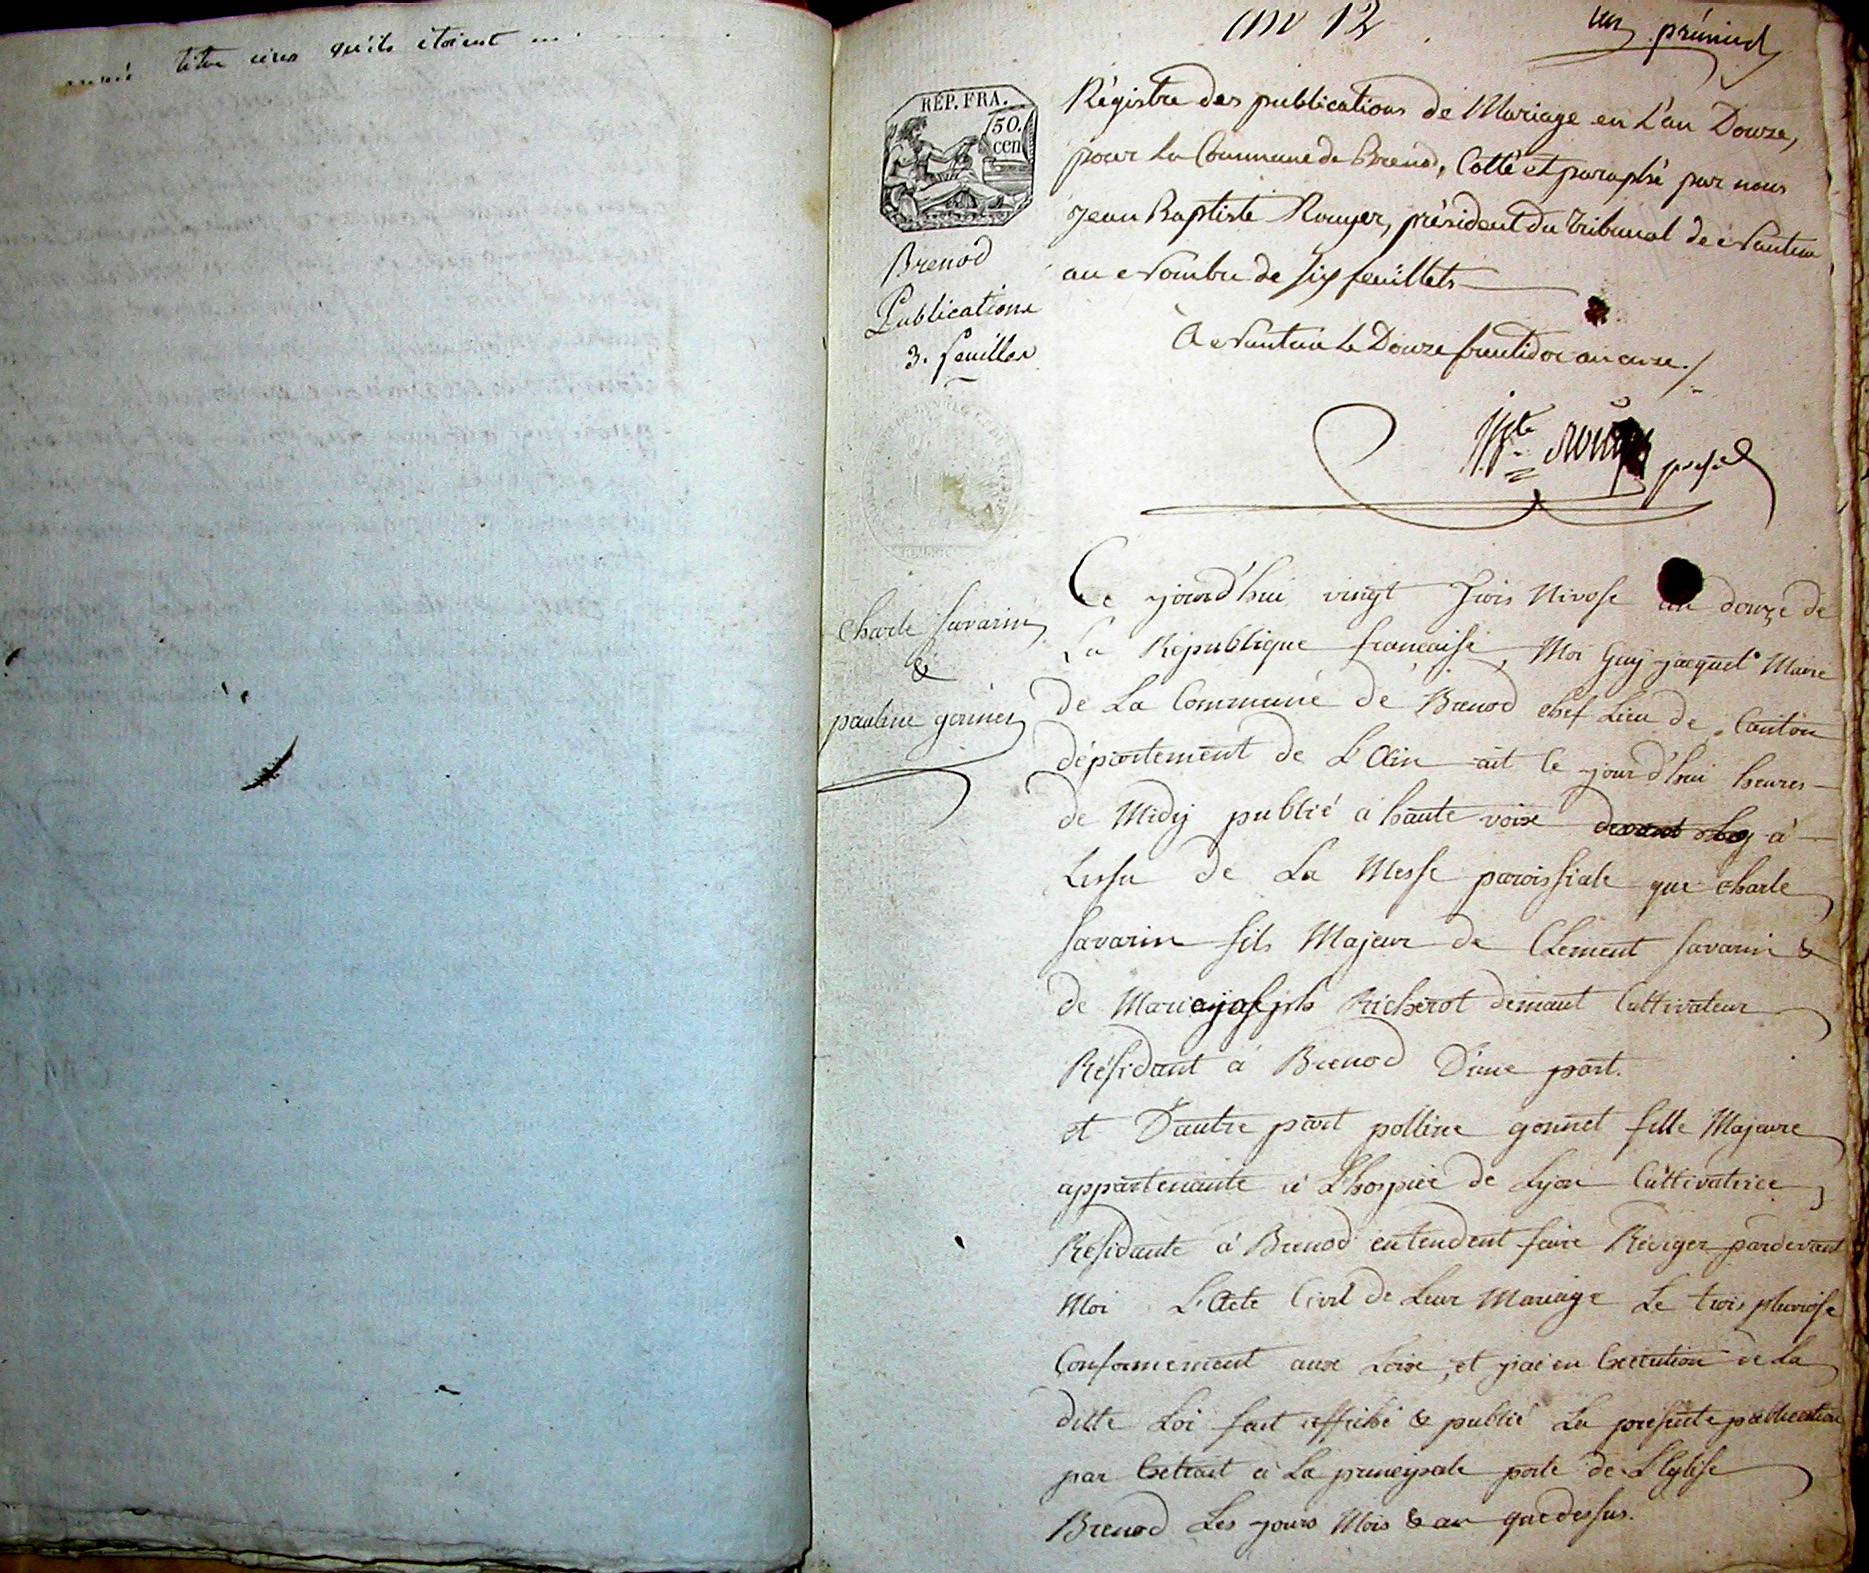 qu'ils étoient ....
an 12
un prémier
RÉP. FRA.
50.
cen
Régistre des publications de Mariage en L'an Douze,
pour La Commune de Brenod, Cotté et paraphé par nous
Jean Baptiste Rouyer, président du tribunal de Nantua
au Nombre de Six feuillets
A Nantua Le Douze fructidor an onze ./.
Brenod
Publications
3. feuilles
Jn Bte Rouyer presid
Charle Savarin
&
pauline gonnet
Ce jourd'hui vingt trois Nivose an douze de
La Republique francaise, Moi Guy jacquet Maire
de La Commune de Brenod chef Lieu de Canton
département de L'Ain ait Ce jourd'hui heures
de Midy publié a haute voix devant à
Lissu de La Messe paroissiale que Charle
Savarin fils Majeur de Clement Savarin &
de Marie joseph Richerot demant Cultivateur
Résidant à Brenod D'une part.
et D'autre part polline gonnet fille Majeure
appartenante à L'hospice de Lyon Cultivatrice
Residante à Brenod entendent faire Rédiger pardevant
Moi L'Acte Civil de Leur Mariage Le trois pluviose
Conformement aux Loix, et j'ai en Execution de La
ditte Loi fait affiché & publié La presente publication
par Extrait à La principale porte de L'Eglise
Brenod Les jours Mois & an que dessus.